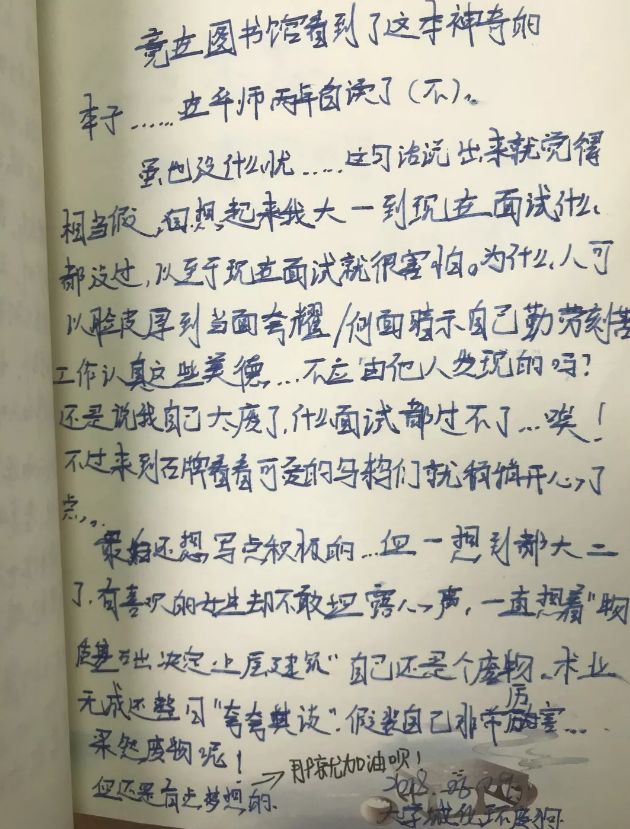 竟在图书馆看到了这本神奇的
本子……在华师两年白读了（不）。
虽也没什么忧……这句话说出来就觉得
相当假,但想起来我大一到现在面试什么
都没过,以至于现在面试就很害怕。为什么人可
以脸皮厚到当面夸耀/侧面暗示自己勤劳刻苦
工作认真这些美德…不应由他人发现的吗?
还是说我自己太废了,什么面试都过不了…唉!
不过来到石牌看看可爱的乌鸫们就稍稍开心了
点。
最后还想写点积极的…但一想到都大二
了,有喜欢的女生却不敢坦露心声,一直想着"物
质基础决定上层建筑"自己还是个废物。术业
无成还整日"夸夸其谈",假装自己非常厉害…
果然废物呢!
但还是有点梦想的. → 那就加油呗!
大学城